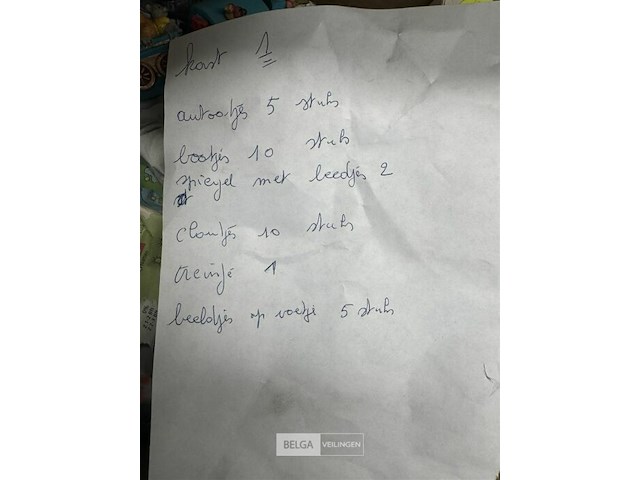 kast 1
autootjes 5 stuks
bootjes 10 stuks
spiegel met beedjes 2
st
clowntjes 10 stuks
treintje 1
beeldjes op voetje 5 stuks
BELGA VEILINGEN